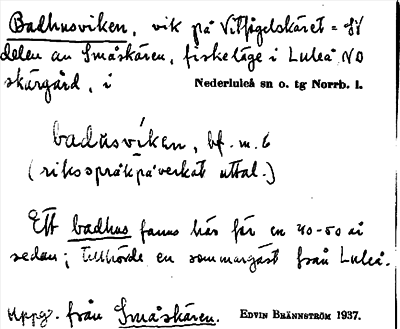 Badhusviken, vik på Vitfågelskäret = Sö
delen av Småskären, fiskeläge i Luleå NO
skärgård, i Nederluleå sn o. tg Norrb. l.
badusvíken, bf. m. 6
(riksspråkpåverkat uttal.)
Ett badhus fanns här för en 40-50 år
sedan; tillhörde en sommargäst från Luleå.
Uppg. från Småskären. EDVIN BRÄNNSTRÖM 1937.